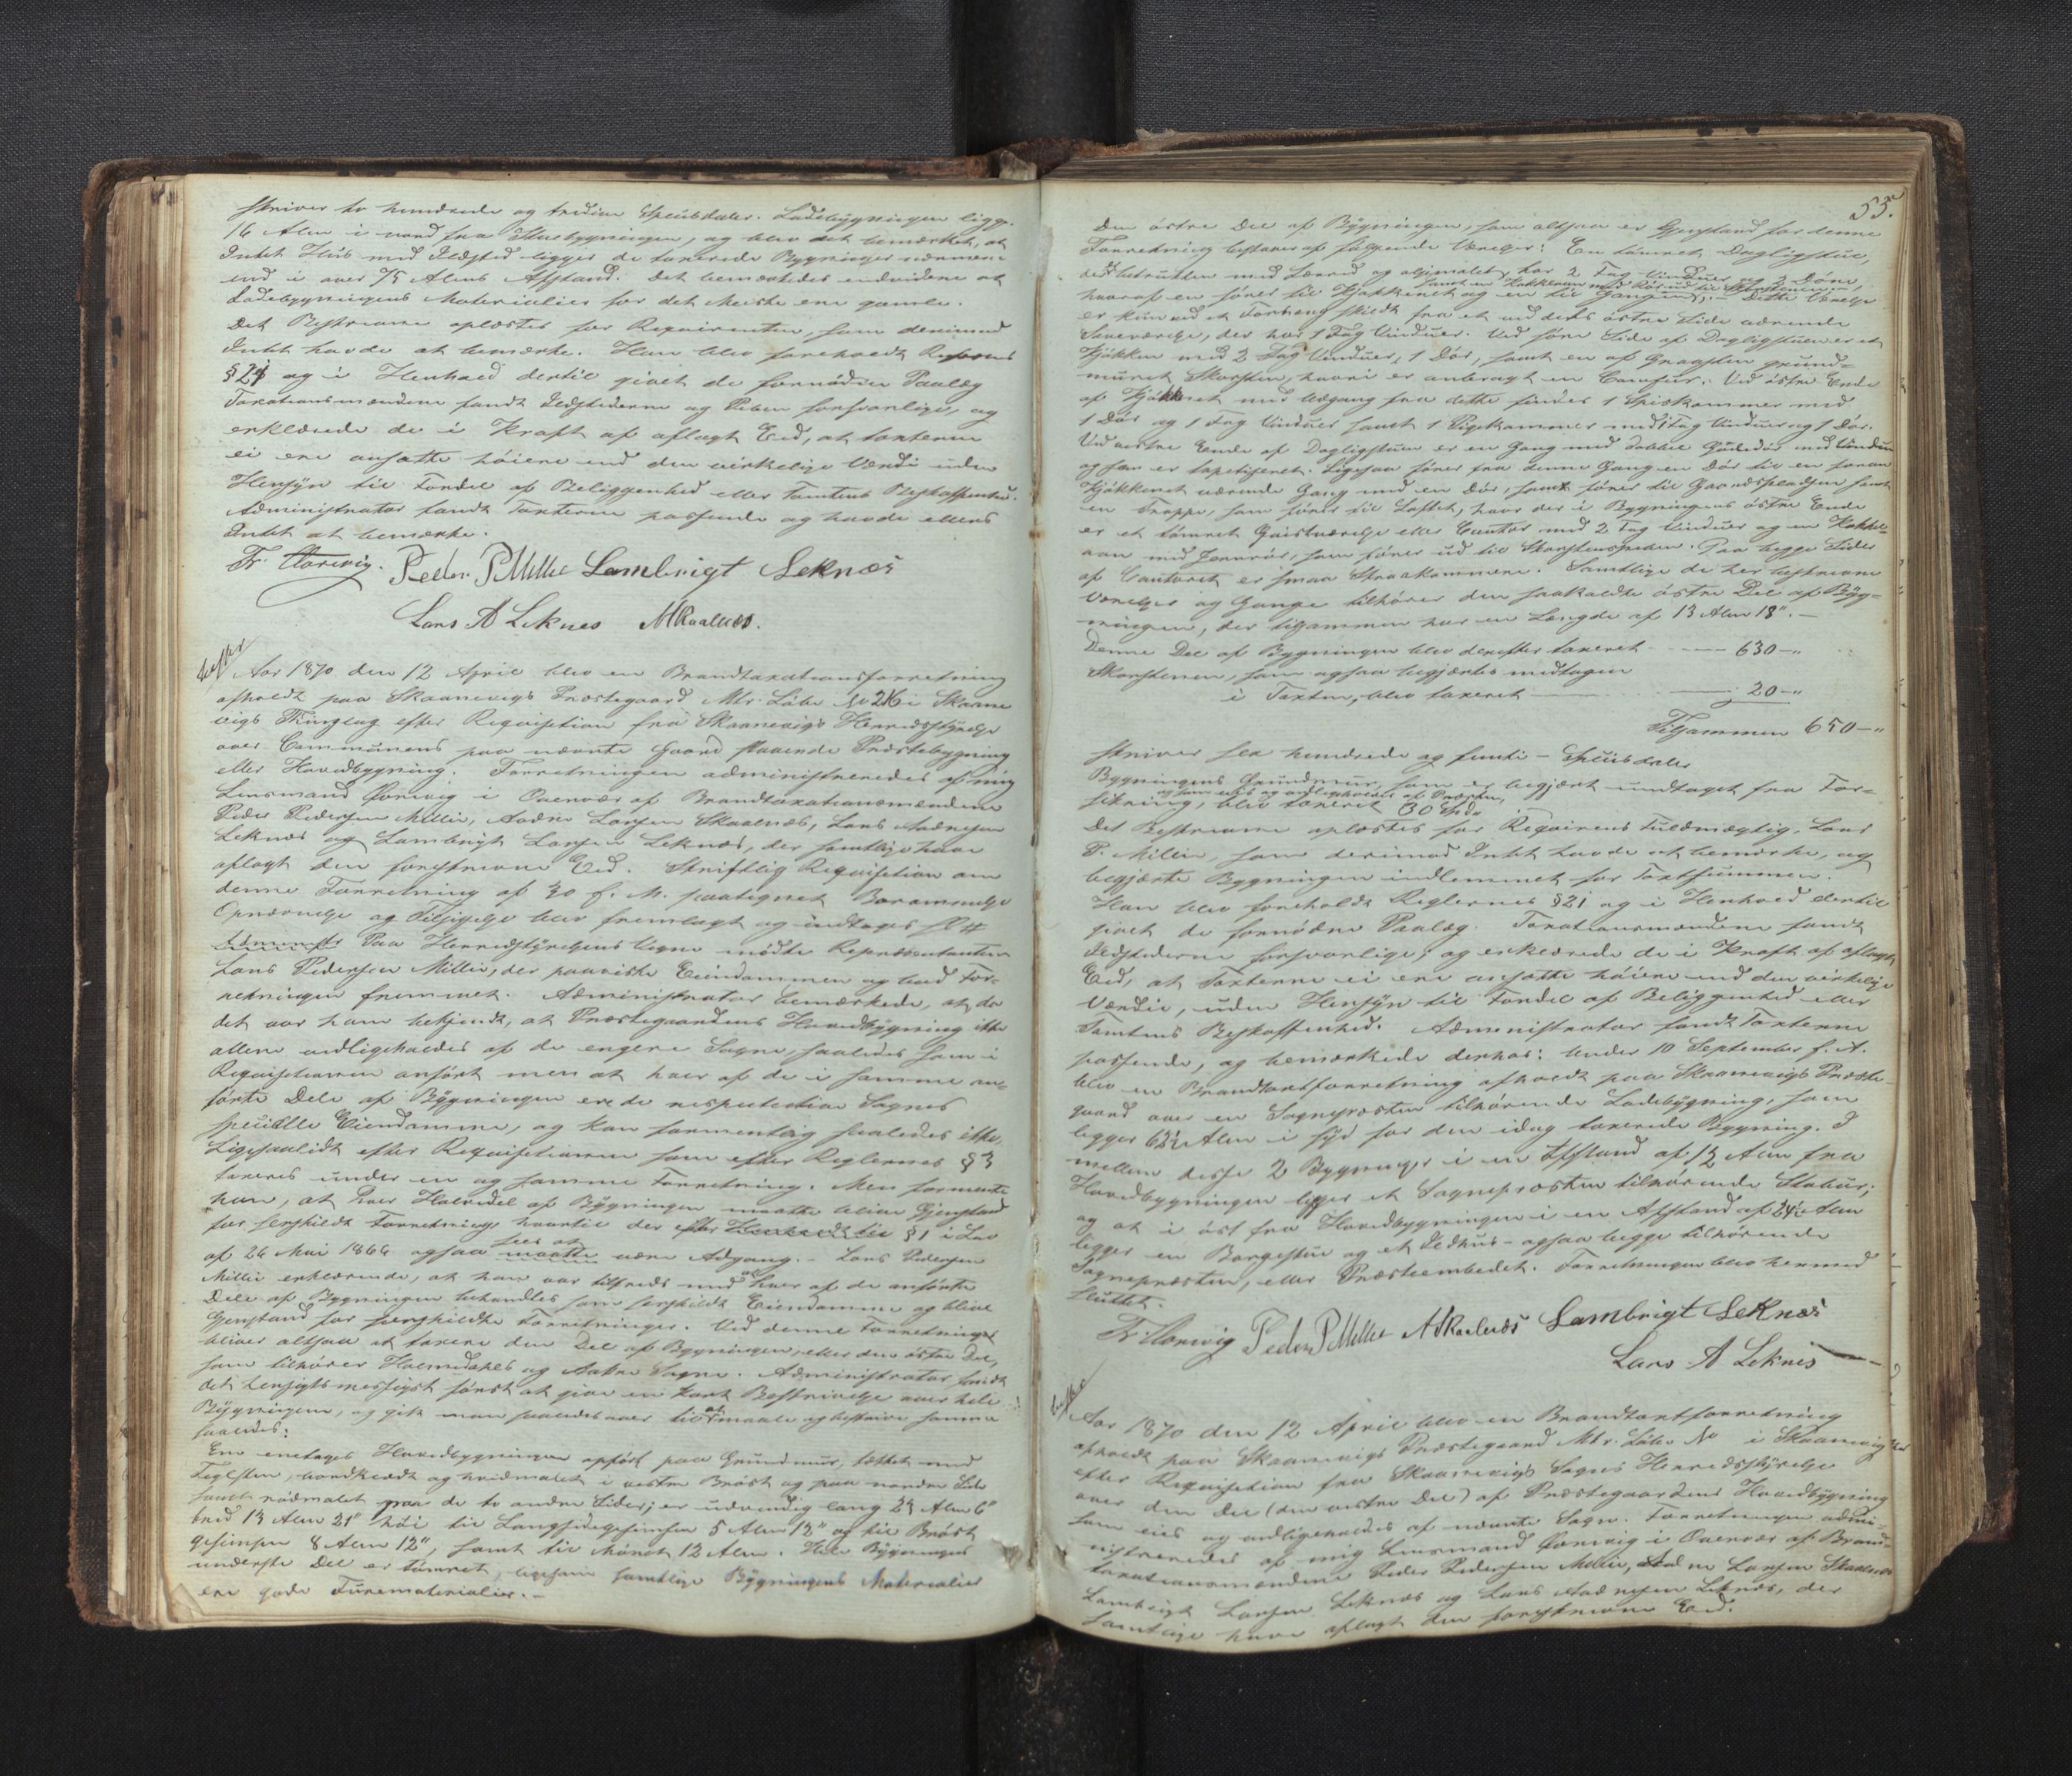 skriver to hundrede og tredive Speciedaler. Ladebygningen ligger
16 Alen i nord fra Skurbygningen, og blev det bemærket, at
Intet Huus med Ildsted ligger de taxerede Bygninger nærmere
end i over 75 Alens Afstand. Det bemærkedes endvidere at
Ladebygningens Materialier for det Meste ere gamle.
Det Beskrevne oplæstes for Requirenten, som derimod
Intet havde at bemærke. Han blev foreholdt Reglernes
§ 21 og i Henhold dertil givet de fornødne Paalæg
Taxationsmændene fandt Ildstederne og Piben forsvarlige, og
erklærede de i Kraft af aflagt Eed, at taxterne
ei ere ansatte høiere end den virkelige Værdi uden
Hensyn til Fordel af Beliggenhed eller Tomtens Beskaffenhed.
Administrator fandt Taxterne passende og havde ellers
Intet at bemærke.
Fr. Vorwig. Peder P Millie Lambrigt Leknæs
Lars A Leknes A L Skaalnæs.
Aar 1870 den 12 April blev en Brandtaxationsforretning
afholdt paa Skaanevigs Præstegaard Mtr. Løbe No 216 i Skaane
vigs Thinglag efter Requisition fra Skaanevigs Herredsstyrelse
over Communens paa nævnte Gaard staaende Præstebygning
eller Hovedbygning. Forretningen administreredes af mig
Lensmand Vorwig i Overvær af Brandtaxationsmændene
Peder Pedersen Millie, Aadne Larsen Skaalnæs, Lars Aadnesen
Leknæs og Lambrigt Larsen Leknæs, der samtlige have
aflagt den foreskrevne Eed. Skriftlig Requisition om
denne Forretning af 30 f. M. paategnet Berammelse
Opnævnelse og Tilsigelse blev fremlagt og indtages
Paa Herredstyrelsens Vegne mødte Repræsentanten
Lars Pedersen Millie, der paaviste Eiendommen og bad For-
retningen fremmet. Administrator bemærkede, at da
det var ham bekjendt, at Præstegaardens Hovedbygning ikke
allene vedligeholdes af de engere Sogne, saaledes som i
Requisitionen anført men at hver af de i samme an-
førte Dele af Bygningen ere de respective Sognes
specielle Eiendomme, og kan formentlig saaledes ikke
Ligesaalidt efter Requisitionen som efter Reglernes § 3
taxeres under en og samme Forretning. Men formente
han, at hver Halvdel af Bygningen maatte blive Gjenstand
for særskildt Forretning, hvortil der efter Henhold til § 1 i Lov
af 26 Mai 1866 ogsaa maatte være Adgang. Lars Pedersen
Millie erklærede, at han var tilfreds med at hver af de anførte
Dele af Bygningen behandles som særskildt Eiendomme og blive
Gjenstand for særskildte Forretninger. Ved denne Forretning
bliver altsaa at taxere den Del af Bygningen, eller den østre Del,
som tilhører Holmedahls og Aakre Sogne. Administrator fandt
det hensigtsmessigst først at give en kort Beskrivelse over hele
Bygningen, og gik man saaledes over til at maale og beskrive samme
saaledes:
Een eenetages Hovedbygningen opført paa Grundmuur, tækket med
Teglsten, bordklædt og hvidmalet i vestre Brøst og paa nordre Side
samt rødmalet paa de to andre Sider; er udvendig lang 29 Alen 6"
bred 13 Alen 21" høi til Langsidegesimsen 5 Alen 12" og til Brøst
gesimsen 8 Alen 12", samt til Mønet 12 Alen. Hele Bygningens
underste Del er tømret, ligesom samtlige Bygningens Materialier
ere gode Furematerialier.
55.
Den østre Del af Bygningen, som altsaa er Gjenstand for denne
Forretning bestaaer af følgende Værelser: En tømret Dagligstue,
betrukken med Lærred og oljemalet, har 2 Fag Vinduer og 3 Døre,
samt en Kakkelovn med Rør ud til Skorstenen
hvoraf en fører til Kjøkkenet og en til Gangen; Dette Værelse
er kun ved et Forhæng skildt fra et ved dets østre Side værende
Soveværelse, der har 1 Fag Vinduer. Ved søre Side af Dagligstuen er et
Kjøkken med 2 Fag Vinduer, 1 Dør, samt en af Graasten grund-
muret Skorsten, hvori er anbragt en Comfur. Ved østre Ende
af Kjøkkenet med Udgang fra dette findes 1 Spiskammer med
1 Dør og 1 Fag Vinduer samt 1 Pigekammer med 1 Fag Vinduer og 1 Dør.
Ved vestre Ende af Dagligstuen er en Gang med dobbel Gadedør med Vinduer
og som er tapetseret. Ligesaa fører fra denne Gang en Dør til en foran
Kjøkkenet værende Gang med en Dør, samt fører til Gaardspladsen samt
en Trappe, som fører til Loftet, hvor der i Bygningens østre Ende
er et tømret Gjæstværelse eller Contor med 2 Fag Vinduer og en Kakkel-
ovn med Jernrør, som fører ud til Skorstenspiben. Paa begge Sider
af Contoret er smaa Straakammere. Samtlige de her beskrevne
Værelser og Gange tilhører den saakaldte østre Del af Byg-
ningen, der tilsammen har en Længde af 13 Alen 18".
Denne Del af Bygningen blev derefter taxeret 630-"
Skorstenen, som ogsaa begjærtes medtagen
i Taxten, blev taxeret 20-"
Tilsammen 650-"
skriver sex hundrede og femti - Speciedaler
Bygningens Grundmuur, som er begjært undtaget fra For-
og som eies og vedligeholdes af Præsten,
sikring, blev taxeret 30 Spd.
Det Beskrevne oplæstes for Reqvirentens Fuldmægtig, Lars
P. Millie, som derimod Intet havde at bemærke, og
begjærte Bygningen indlemmet for Taxtsummen.
Han blev foreholdt Reglernes § 21 og i Henhold dertil
givet de fornødne Paalæg. Taxationsmændene fandt
Ildstederne forsvarlige, og erklærede de i Kraft af aflagt
Eed, at Taxterne ei ere ansatte høiere end den virkelige
Værdie, uden Hensyn til Fordel af Beliggenhed eller
Tomtens Beskaffenhed. Administrator fandt Taxterne
passende, og bemærkede derhos: Under 10 September f. A.
blev en Brandtaxtforretning afholdt paa Skaanevigs Præste-
gaard over en Sognepræsten tilhørende Ladebygning, som
ligger 62½ Alen i syd for den idag taxerede Bygning. I
mellem disse 2 Bygninger i en Afstand af 12 Alen fra
Hovedbygningen ligger et Sognepræsten tilhørende Stabur;
og at i øst fra Hovedbygningen i en Afstand af 24½ Alen
ligger en Borgestue og et Ildhus - ogsaa begge tilhørende
Sognepræsten, eller Præsteembedet. Forretningen blev hermed
sluttet.
Fr. Vorwig Peder P Millie A L Skaalnæs Lambrigt Leknæs
Lars A Leknes
Aar 1870 den 12 April blev en Brandtaxtforretning
afholdt paa Skaanevigs Præstegaard Mtr. Løbe No i Skaanevig
efter Requisition fra Skaanevigs Sogns Herredsstyrelse
over den Del (den vestre Del) af Præstegaardens Hovedbygning
som eies og vedligeholdes af nævnte Sogn. Forretningen admi-
nistreredes af mig Lensmand Vorwig i Overvær af Brand-
taxationsmændene Peder Pedersen Millie, Aadne Larsen Skaalnæs
Lambrigt Larsen Leknæs og Lars Aadnesen Leknæs, der
samtlige have aflagt den foreskrevne Eed.